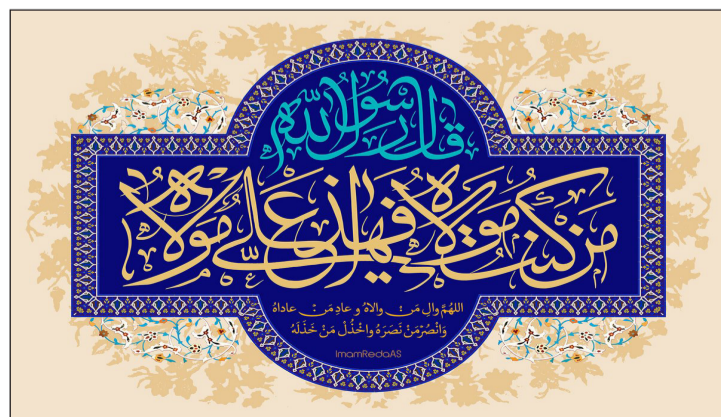 قال رسول الله
من كنت مولاه فهذا علي مولاه
اللهُمَّ والِ مَن والاهُ و عادِ مَن عاداهُ
وَانْصُرْ مَنْ نَصَرَهُ وَاخْذُلْ مَنْ خَذَلَهُ
ImamRedaAS